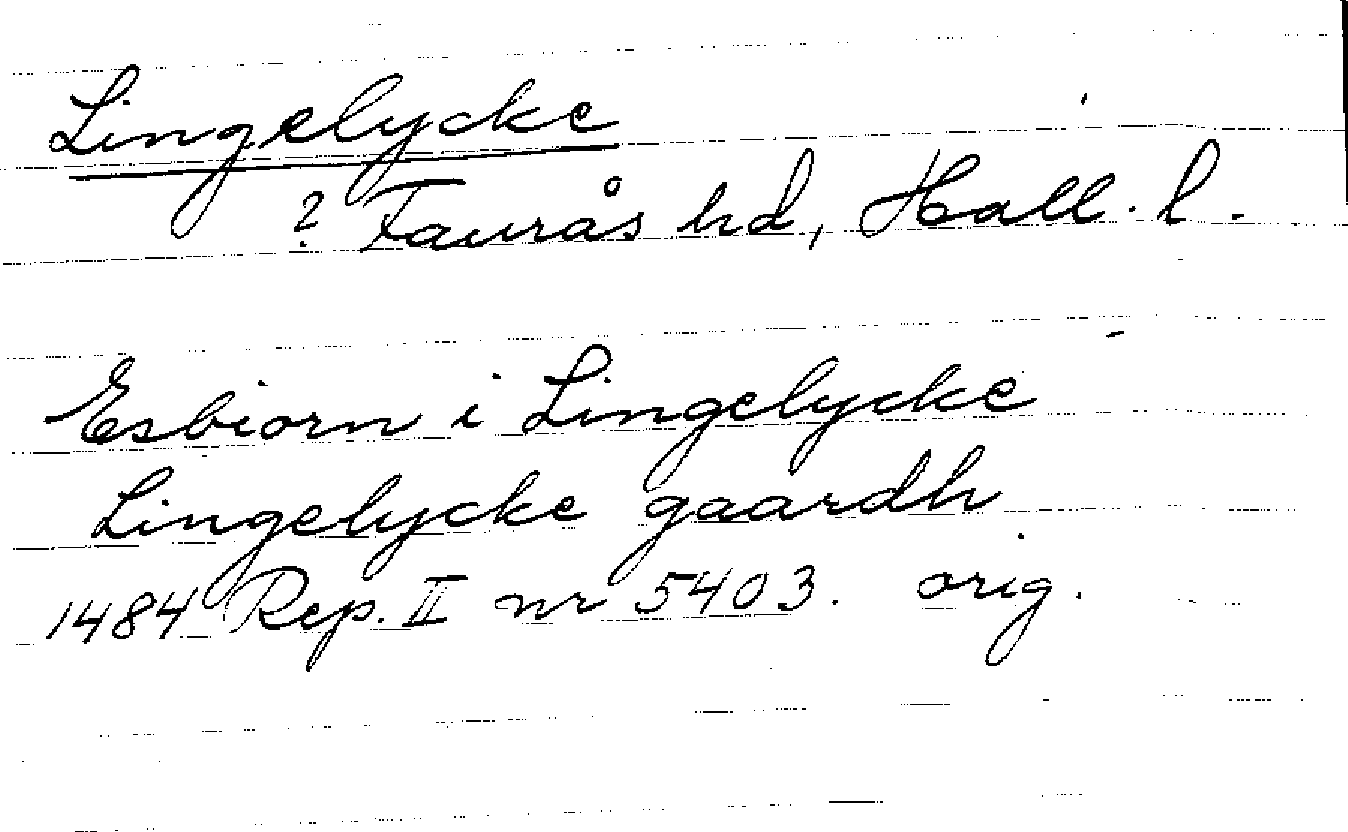 Lingelycke
? Faurås hd, Hall. l.
Esbiorn i Lingelycke
Lingelycke gaardh
1484 Rep. II nr 5403. orig.